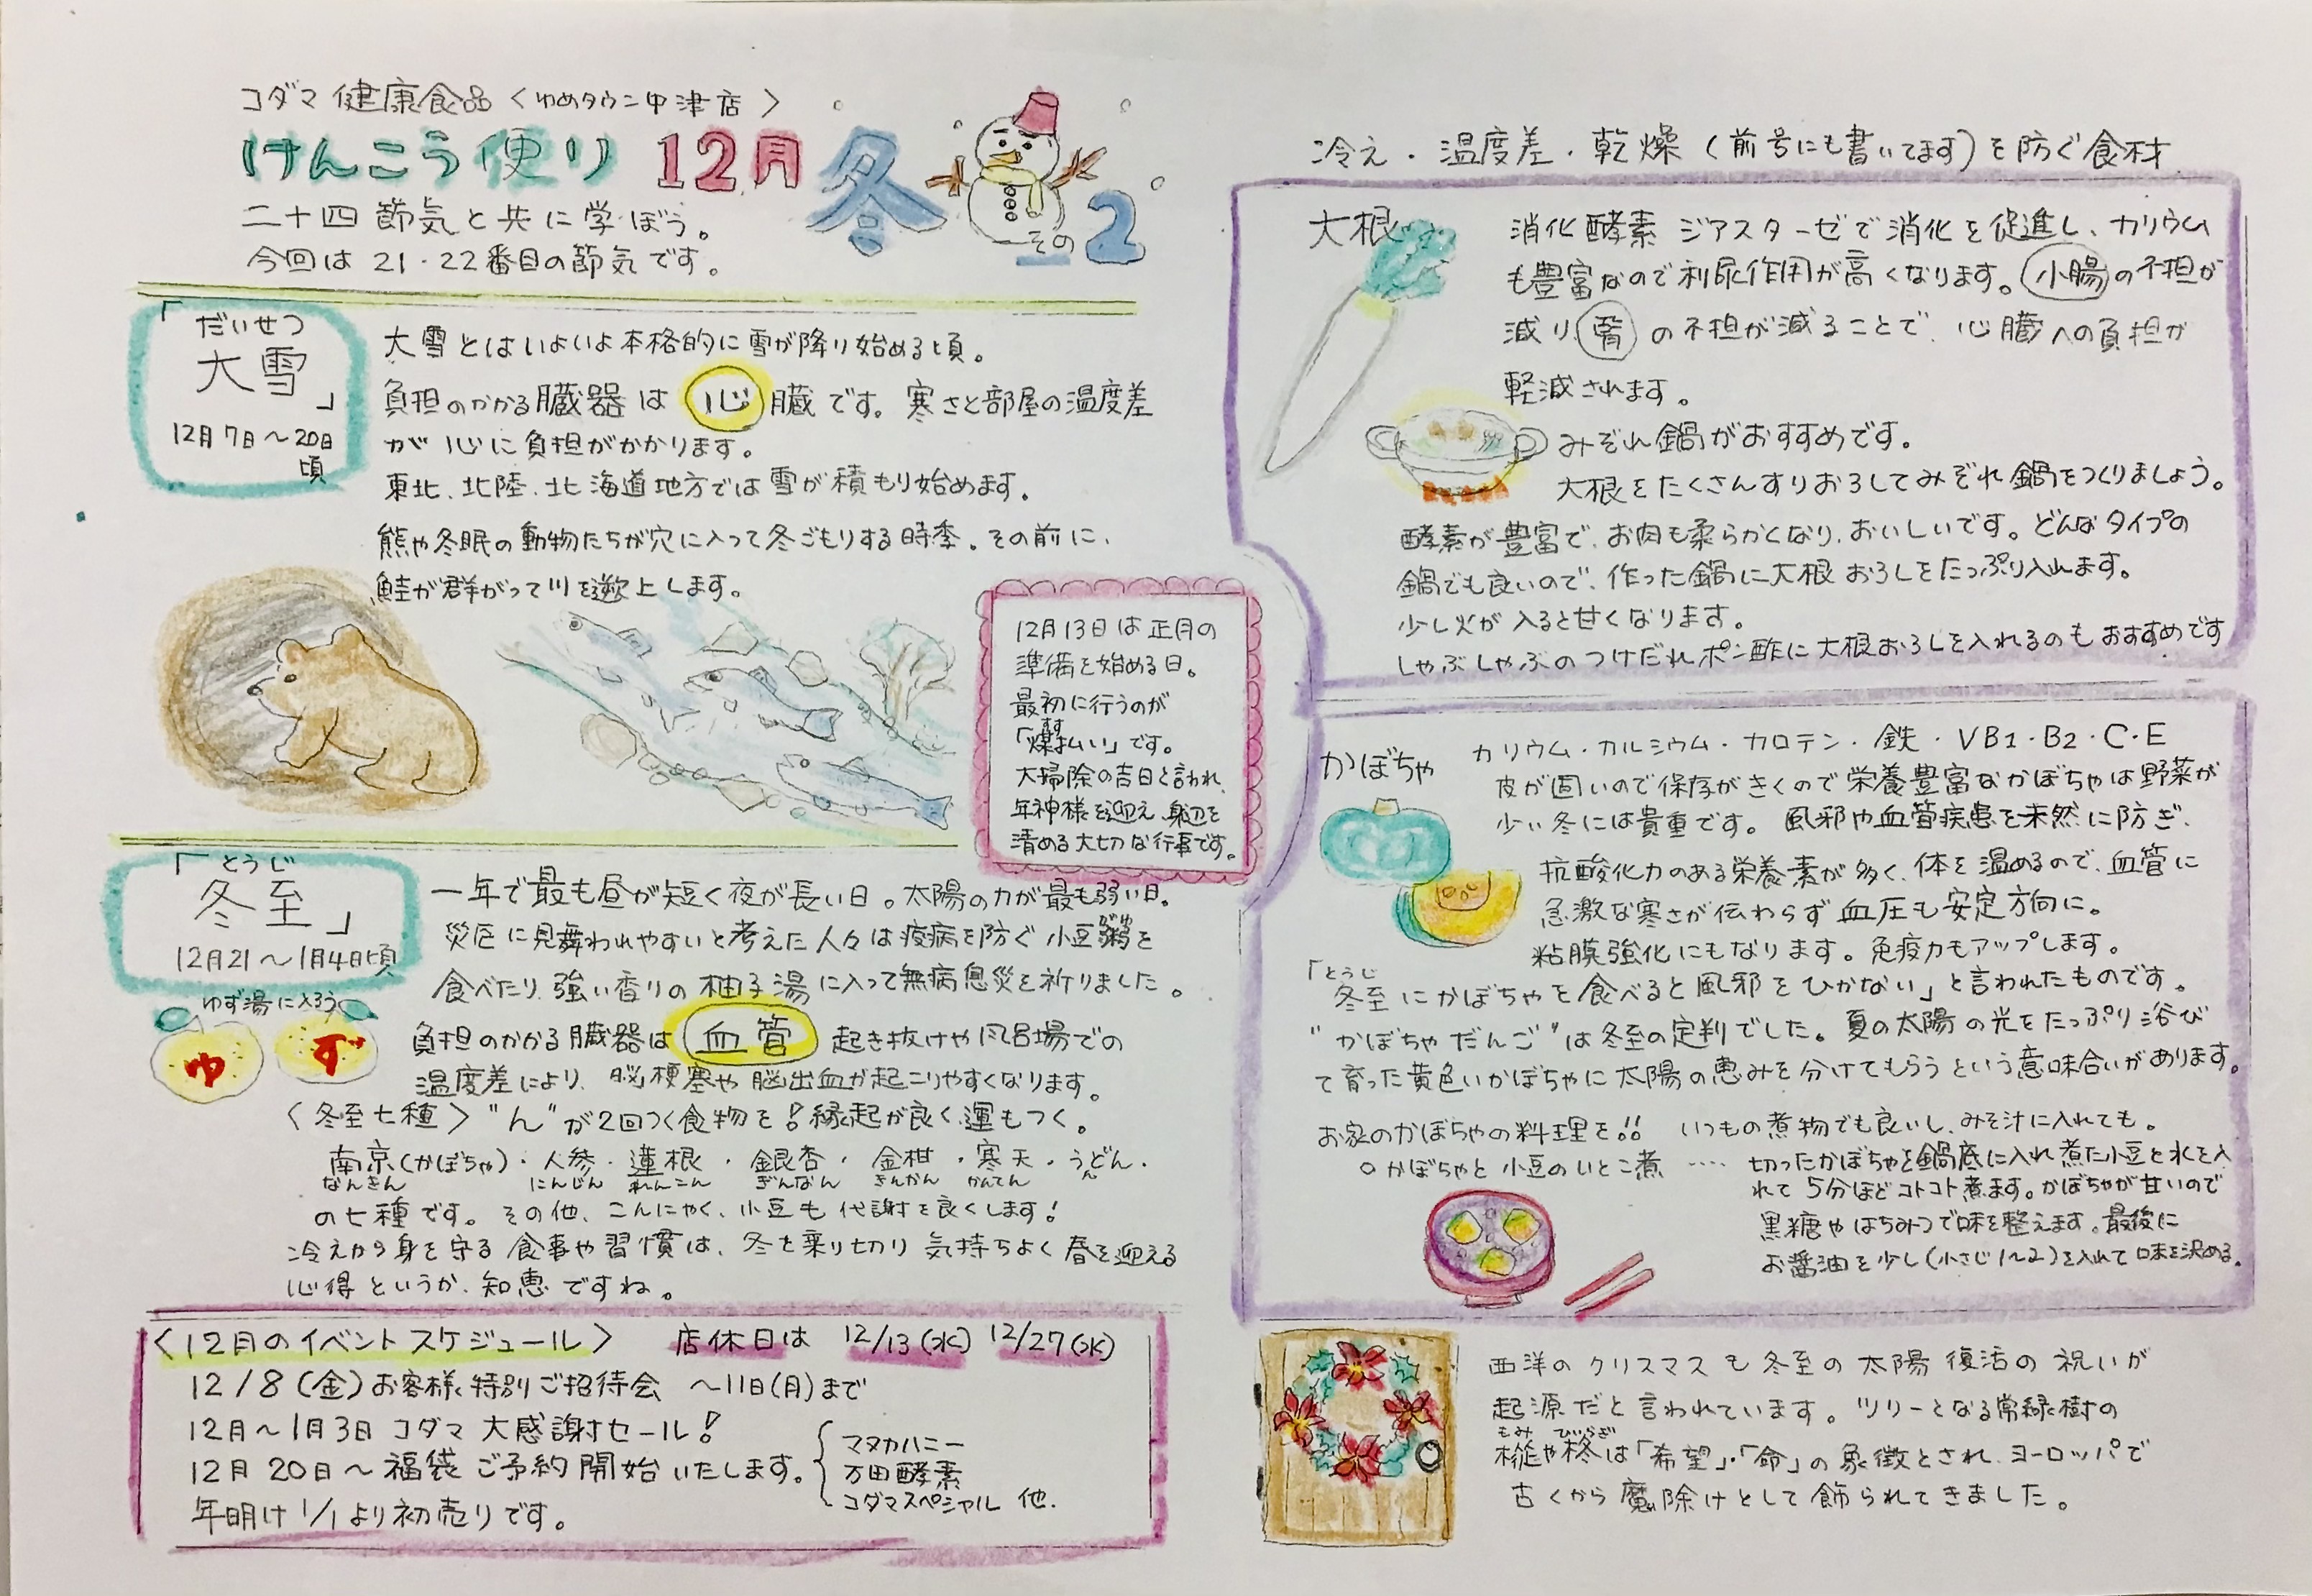 コダマ健康食品〈ゆめタウン中津店〉
けんこう便り 12月 冬 その2
二十四節気と共に学ぼう。
今回は21・22番目の節気です。
「だいせつ
大雪」
12月7日～20日
頃
大雪とはいよいよ本格的に雪が降り始める頃。
負担のかかる臓器は 心臓です。寒さと部屋の温度差
が心に負担がかかります。
東北、北陸、北海道地方では雪が積もり始めます。
熊や冬眠の動物たちが穴に入って冬ごもりする時季。その前に、
鮭が群がって川を遡上します。
12月13日は正月の
準備を始める日。
最初に行うのが
すす
「煤払い」です。
大掃除の吉日と言われ、
年神様を迎え、身辺を
清める大切な行事です。
「とうじ
冬至」
12月21～1月4日頃
ゆず湯に入ろう
ゆ ず
一年で最も昼が短く夜が長い日。太陽の力が最も弱い日。
災厄に見舞われやすいと考えた人々は疫病を防ぐ小豆粥を
がゆ
食べたり、強い香りの柚子湯に入って無病息災を祈りました。
負担のかかる臓器は 血管 起き抜けや風呂場での
温度差により、脳梗塞や脳出血が起こりやすくなります。
〈冬至七種〉"ん"が2回つく食物を!縁起が良く、運もつく。
南京(かぼちゃ)・人参・蓮根・銀杏・金柑・寒天・うどん・
なんきん にんじん れんこん ぎんなん きんかん かんてん ん
の七種です。その他、こんにゃく、小豆も代謝を良くします!
冷えから身を守る食事や習慣は、冬を乗り切り気持ちよく春を迎える
心得というか、知恵ですね。
〈12月のイベントスケジュール〉 店休日は 12/13(水) 12/27(水)
12/8(金)お客様特別ご招待会 ～11日(月)まで
12月～1月3日 コダマ大感謝セール!
12月20日～福袋ご予約開始いたします。
マヌカハニー
万田酵素
コダマスペシャル 他.
年明け1/1より初売りです。
冷え・温度差・乾燥(前号にも書いてます)を防ぐ食材
大根
消化酵素ジアスターゼで消化を促進し、カリウム
も豊富なので利尿作用が高くなります。小腸の不担が
減り、腎の不担が減ることで、心臓への負担が
軽減されます。
みぞれ鍋がおすすめです。
大根をたくさんすりおろしてみぞれ鍋をつくりましょう。
酵素が豊富で、お肉も柔らかくなり、おいしいです。どんなタイプの
鍋でも良いので、作った鍋に大根おろしをたっぷり入れます。
少し火が入ると甘くなります。
しゃぶしゃぶのつけだれポン酢に大根おろしを入れるのもおすすめです
かぼちゃ
カリウム・カルシウム・カロテン・鉄・VB1・B2・C・E
皮が固いので保存がきくので栄養豊富なかぼちゃは野菜が
少い冬には貴重です。風邪や血管疾患を未然に防ぎ、
抗酸化力のある栄養素が多く、体を温めるので、血管に
急激な寒さが伝わらず血圧も安定方向に。
粘膜強化にもなります。免疫力もアップします。
「とうじ
冬至にかぼちゃを食べると風邪をひかない」と言われたものです。
"かぼちゃだんご"は冬至の定判でした。夏の太陽の光をたっぷり浴び
て育った黄色いかぼちゃに太陽の恵みを分けてもらうという意味合いがあります。
お家のかぼちゃの料理を!! いつもの煮物でも良いし、みそ汁に入れても。
○かぼちゃと小豆のいとこ煮 ‥‥ 切ったかぼちゃを鍋底に入れ煮た小豆と水を入
れて5分ほどコトコト煮ます。かぼちゃが甘いので
黒糖やはちみつで味を整えます。最後に
お醤油を少し(小さじ1～2)を入れて味を決める。
西洋のクリスマスも冬至の太陽復活の祝いが
起源だと言われています。ツリーとなる常緑樹の
もみ ひいらぎ
樅や柊は「希望」・「命」の象徴とされ、ヨーロッパで
古くから魔除けとして飾られてきました。